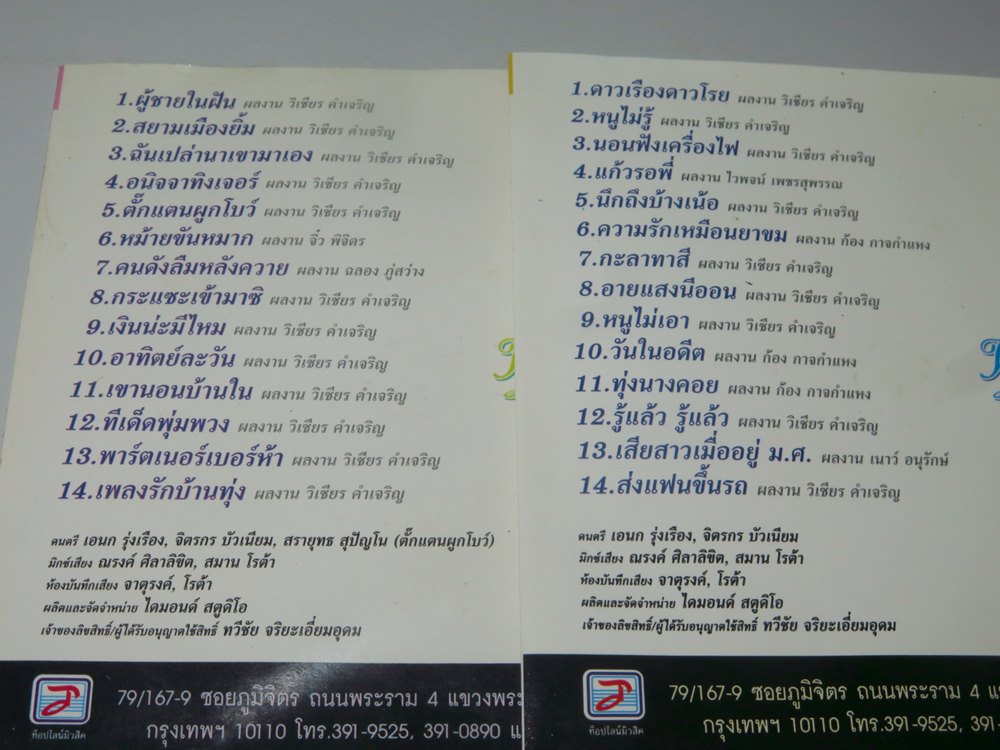 1.ผู้ชายในฝัน ผลงาน วิเชียร คำเจริญ
2.สยามเมืองยิ้ม ผลงาน วิเชียร คำเจริญ
3.ฉันเปล่านาเขามาเอง ผลงาน วิเชียร คำเจริญ
4.อนิจจาทิงเจอร์ ผลงาน วิเชียร คำเจริญ
5.ตั๊กแตนผูกโบว์ ผลงาน วิเชียร คำเจริญ
6.หม้ายขันหมาก ผลงาน จิ๋ว พิจิตร
7.คนดังลืมหลังควาย ผลงาน ฉลอง ภู่สว่าง
8.กระแซะเข้ามาซิ ผลงาน วิเชียร คำเจริญ
9.เงินน่ะมีไหม ผลงาน วิเชียร คำเจริญ
10.อาทิตย์ละวัน ผลงาน วิเชียร คำเจริญ
11.เขานอนบ้านใน ผลงาน วิเชียร คำเจริญ
12.ทีเด็ดพุ่มพวง ผลงาน วิเชียร คำเจริญ
13.พาร์ตเนอร์เบอร์ห้า ผลงาน วิเชียร คำเจริญ
14.เพลงรักบ้านทุ่ง ผลงาน วิเชียร คำเจริญ
ดนตรี เอนก รุ่งเรือง, จิตรกร บัวเนียม, สรายุทธ สุปัญโน (ตั๊กแตนผูกโบว์)
มิกซ์เสียง ณรงค์ ศิลาลิขิต, สมาน โรต้า
ห้องบันทึกเสียง จาตุรงค์, โรต้า
ผลิตและจัดจำหน่าย ไดมอนด์ สตูดิโอ
เจ้าของลิขสิทธิ์/ผู้ได้รับอนุญาตใช้สิทธิ์ ทวีชัย จริยะเอี่ยมอุดม
ท็อปไลน์มิวสิค
79/167-9 ซอยภูมิจิตร ถนนพระราม 4 แขวงพระ
กรุงเทพฯ 10110 โทร.391-9525, 391-0890
1.ดาวเรืองดาวโรย ผลงาน วิเชียร คำเจริญ
2.หนูไม่รู้ ผลงาน วิเชียร คำเจริญ
3.นอนฟังเครื่องไฟ ผลงาน วิเชียร คำเจริญ
4.แก้วรอพี่ ผลงาน ไวพจน์ เพชรสุพรรณ
5.นึกถึงบ้างเน้อ ผลงาน วิเชียร คำเจริญ
6.ความรักเหมือนยาขม ผลงาน ก้อง กาจกำแหง
7.กะลาทาสี ผลงาน วิเชียร คำเจริญ
8.อายแสงนีออน ผลงาน วิเชียร คำเจริญ
9.หนูไม่เอา ผลงาน วิเชียร คำเจริญ
10.วันในอดีต ผลงาน ก้อง กาจกำแหง
11.ทุ่งนางคอย ผลงาน ก้อง กาจกำแหง
12.รู้แล้ว รู้แล้ว ผลงาน วิเชียร คำเจริญ
13.เสียสาวเมื่ออยู่ ม.ศ. ผลงาน เนาว์ อนุรักษ์
14.ส่งแฟนขึ้นรถ ผลงาน วิเชียร คำเจริญ
ดนตรี เอนก รุ่งเรือง, จิตรกร บัวเนียม
มิกซ์เสียง ณรงค์ ศิลาลิขิต, สมาน โรต้า
ห้องบันทึกเสียง จาตุรงค์, โรต้า
ผลิตและจัดจำหน่าย ไดมอนด์ สตูดิโอ
เจ้าของลิขสิทธิ์/ผู้ได้รับอนุญาตใช้สิทธิ์ ทวีชัย จริยะเอี่ยมอุดม
ท็อปไลน์มิวสิค
79/167-9 ซอยภูมิจิตร ถนนพระราม 4
กรุงเทพฯ 10110 โทร.391-9525, 391-